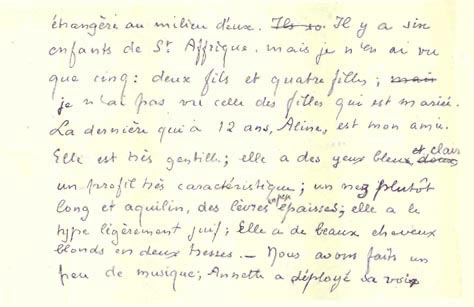 étrangère au milieu d'eux. Ils so. Il y a six
enfants de St Affrique. mais je n'en ai vu
que cinq: deux fils et quatre filles; mais
je n'ai pas vu celle des filles qui est mariée.
La dernière qui a 12 ans, Aline, est mon amie.
Elle est très gentille; elle a des yeux bleus, doux et clairs
un profil très caractéristique; un nez plutôt
long et aquilin, des lèvres un peu épaisses; elle a le
type légèrement juif; Elle a de beaux cheveux
blonds en deux tresses. _ Nous avons fait un
peu de musique; Annette a déployé sa voix